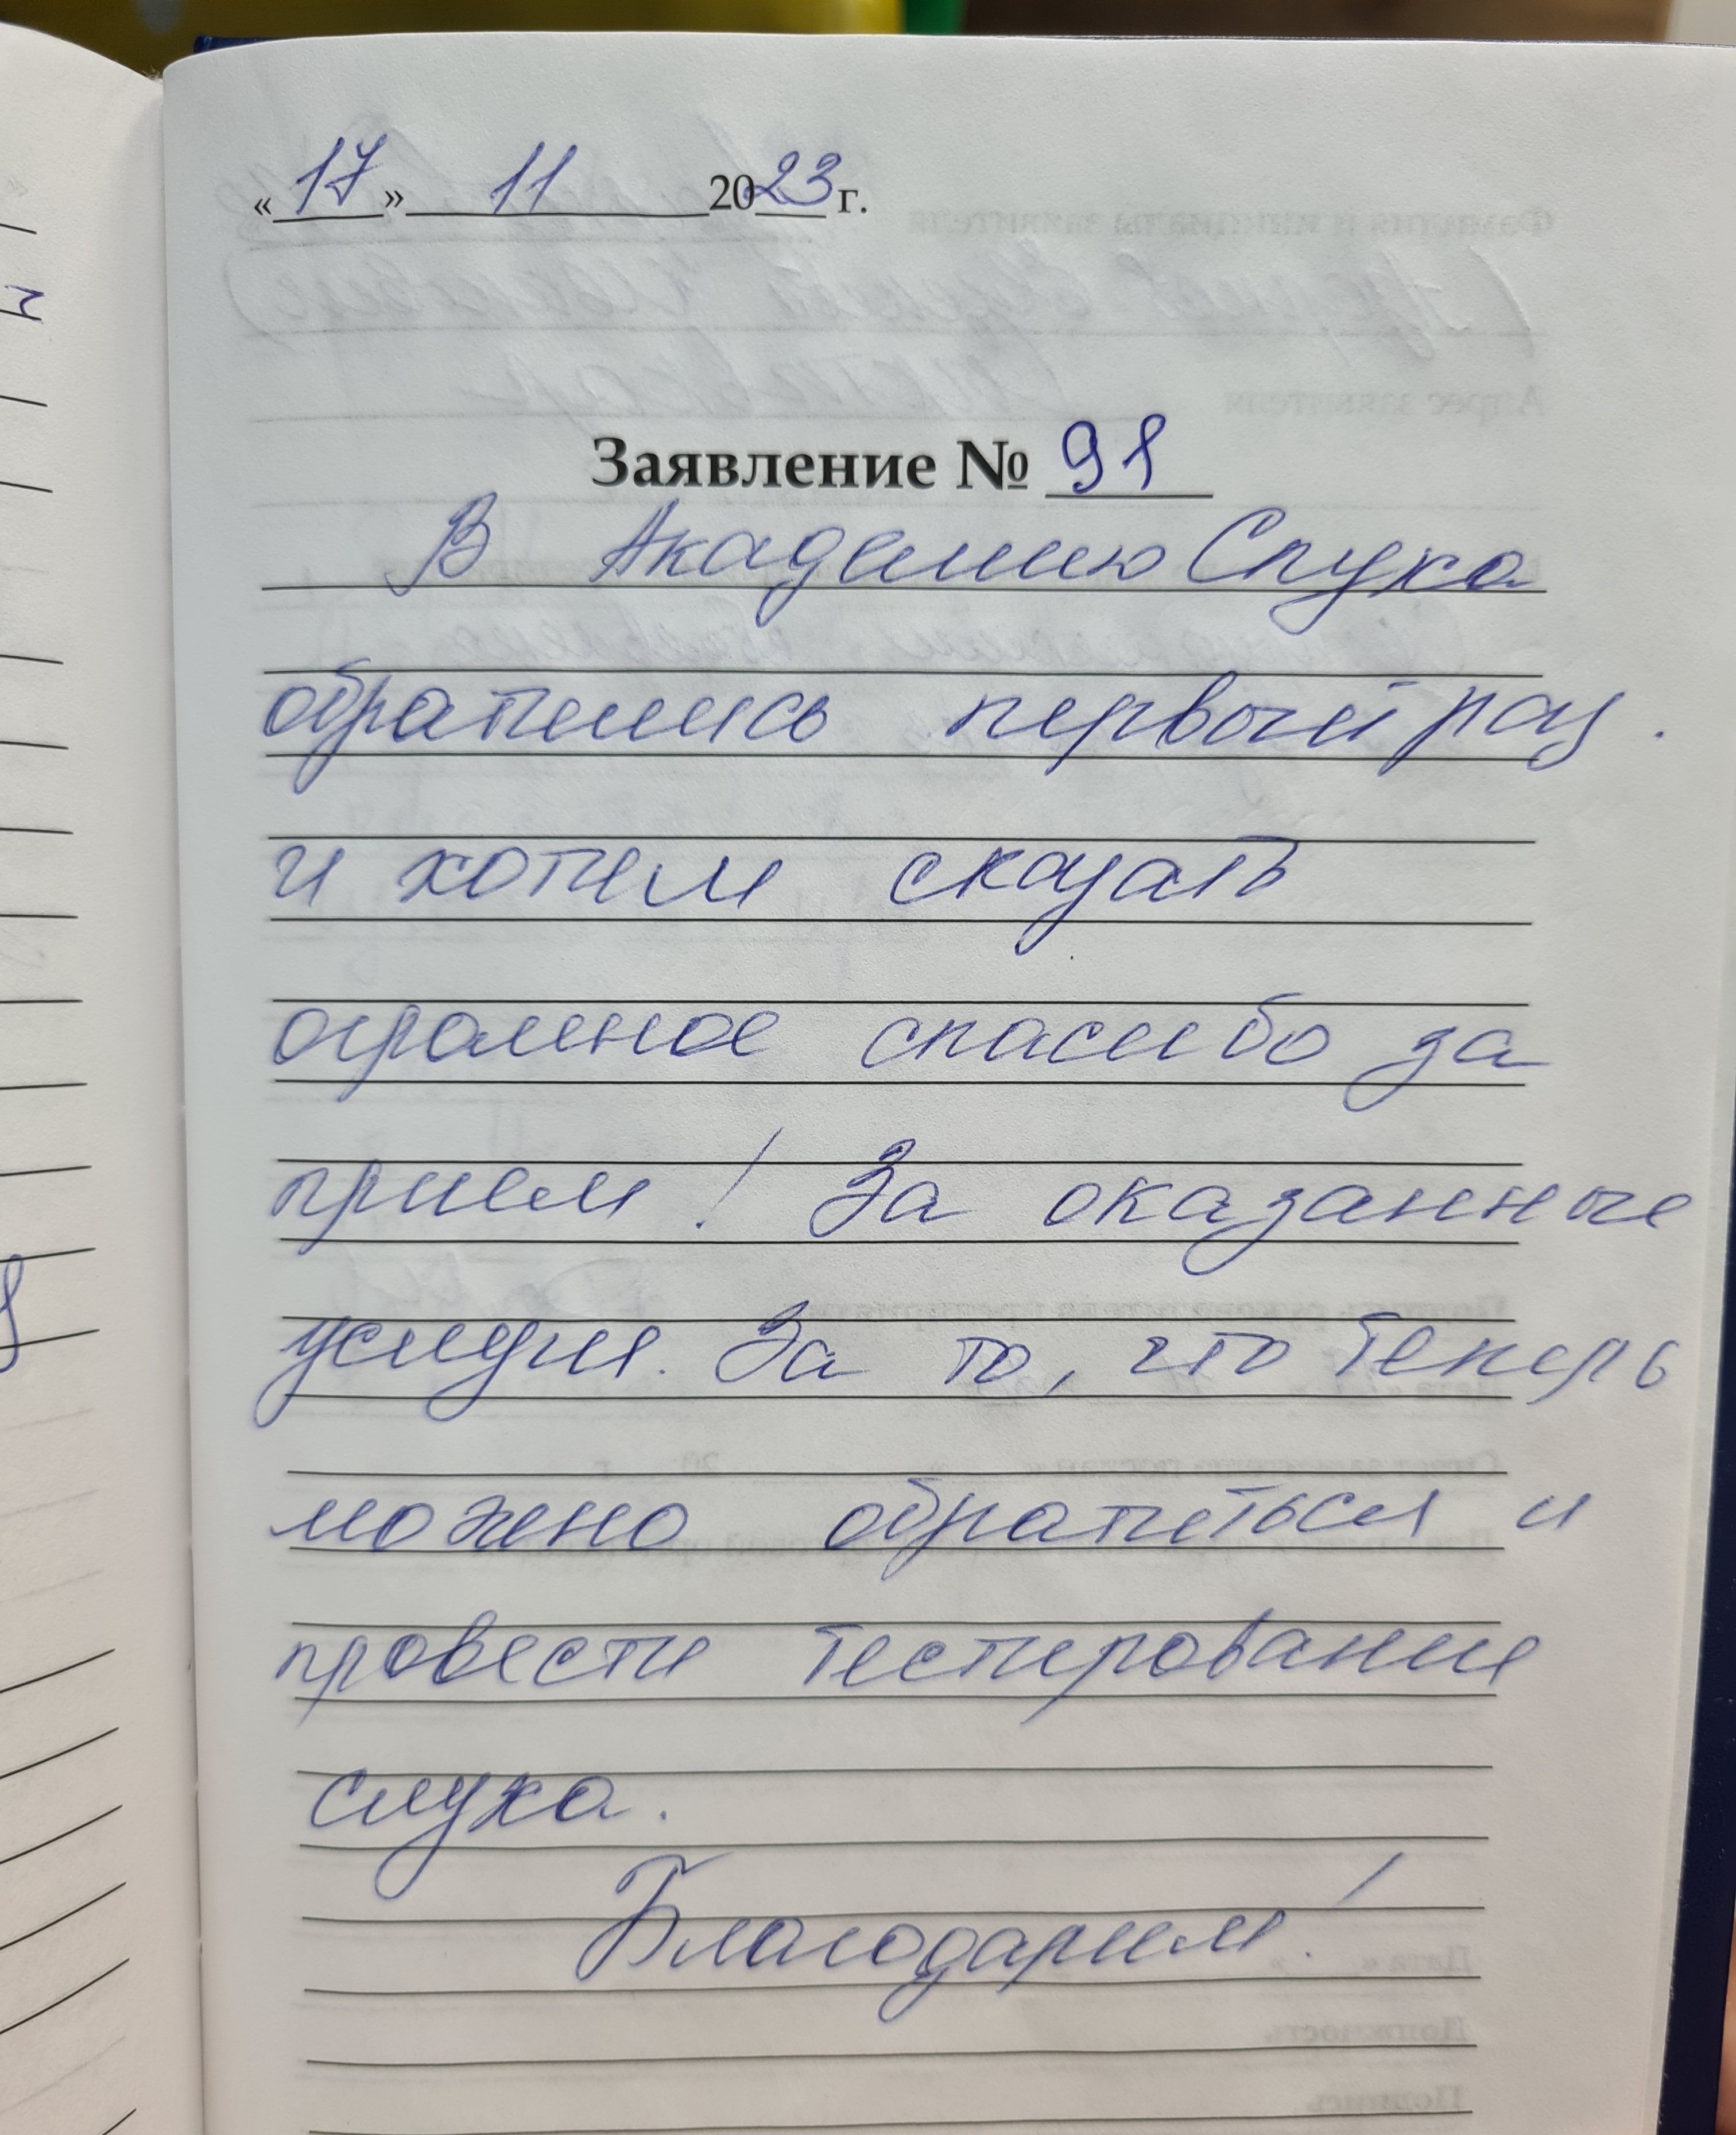 «17» 11 2023 г.
Заявление № 91
В Академию Слуха
обратились первый раз.
и хотим сказать
огромное спасибо за
прием! За оказанные
усилия. За то, что теперь
можно обратиться и
провести тестирование
слуха.
Благодарим!